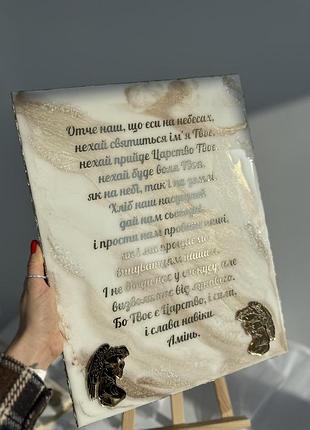 Отче наш, що єси на небесах,
нехай святиться ім'я Твоє,
нехай прийде Царство Твоє,
нехай буде воля Твоя,
як на небі, так і на землі.
Хліб наш насущний
дай нам сьогодні
і прости нам провини наші,
як і ми прощаємо
винуватцям нашим,
І не введи нас у спокусу, але
визволи нас від лукавого.
Бо Твоє є Царство, і сила,
і слава навіки
Амінь.